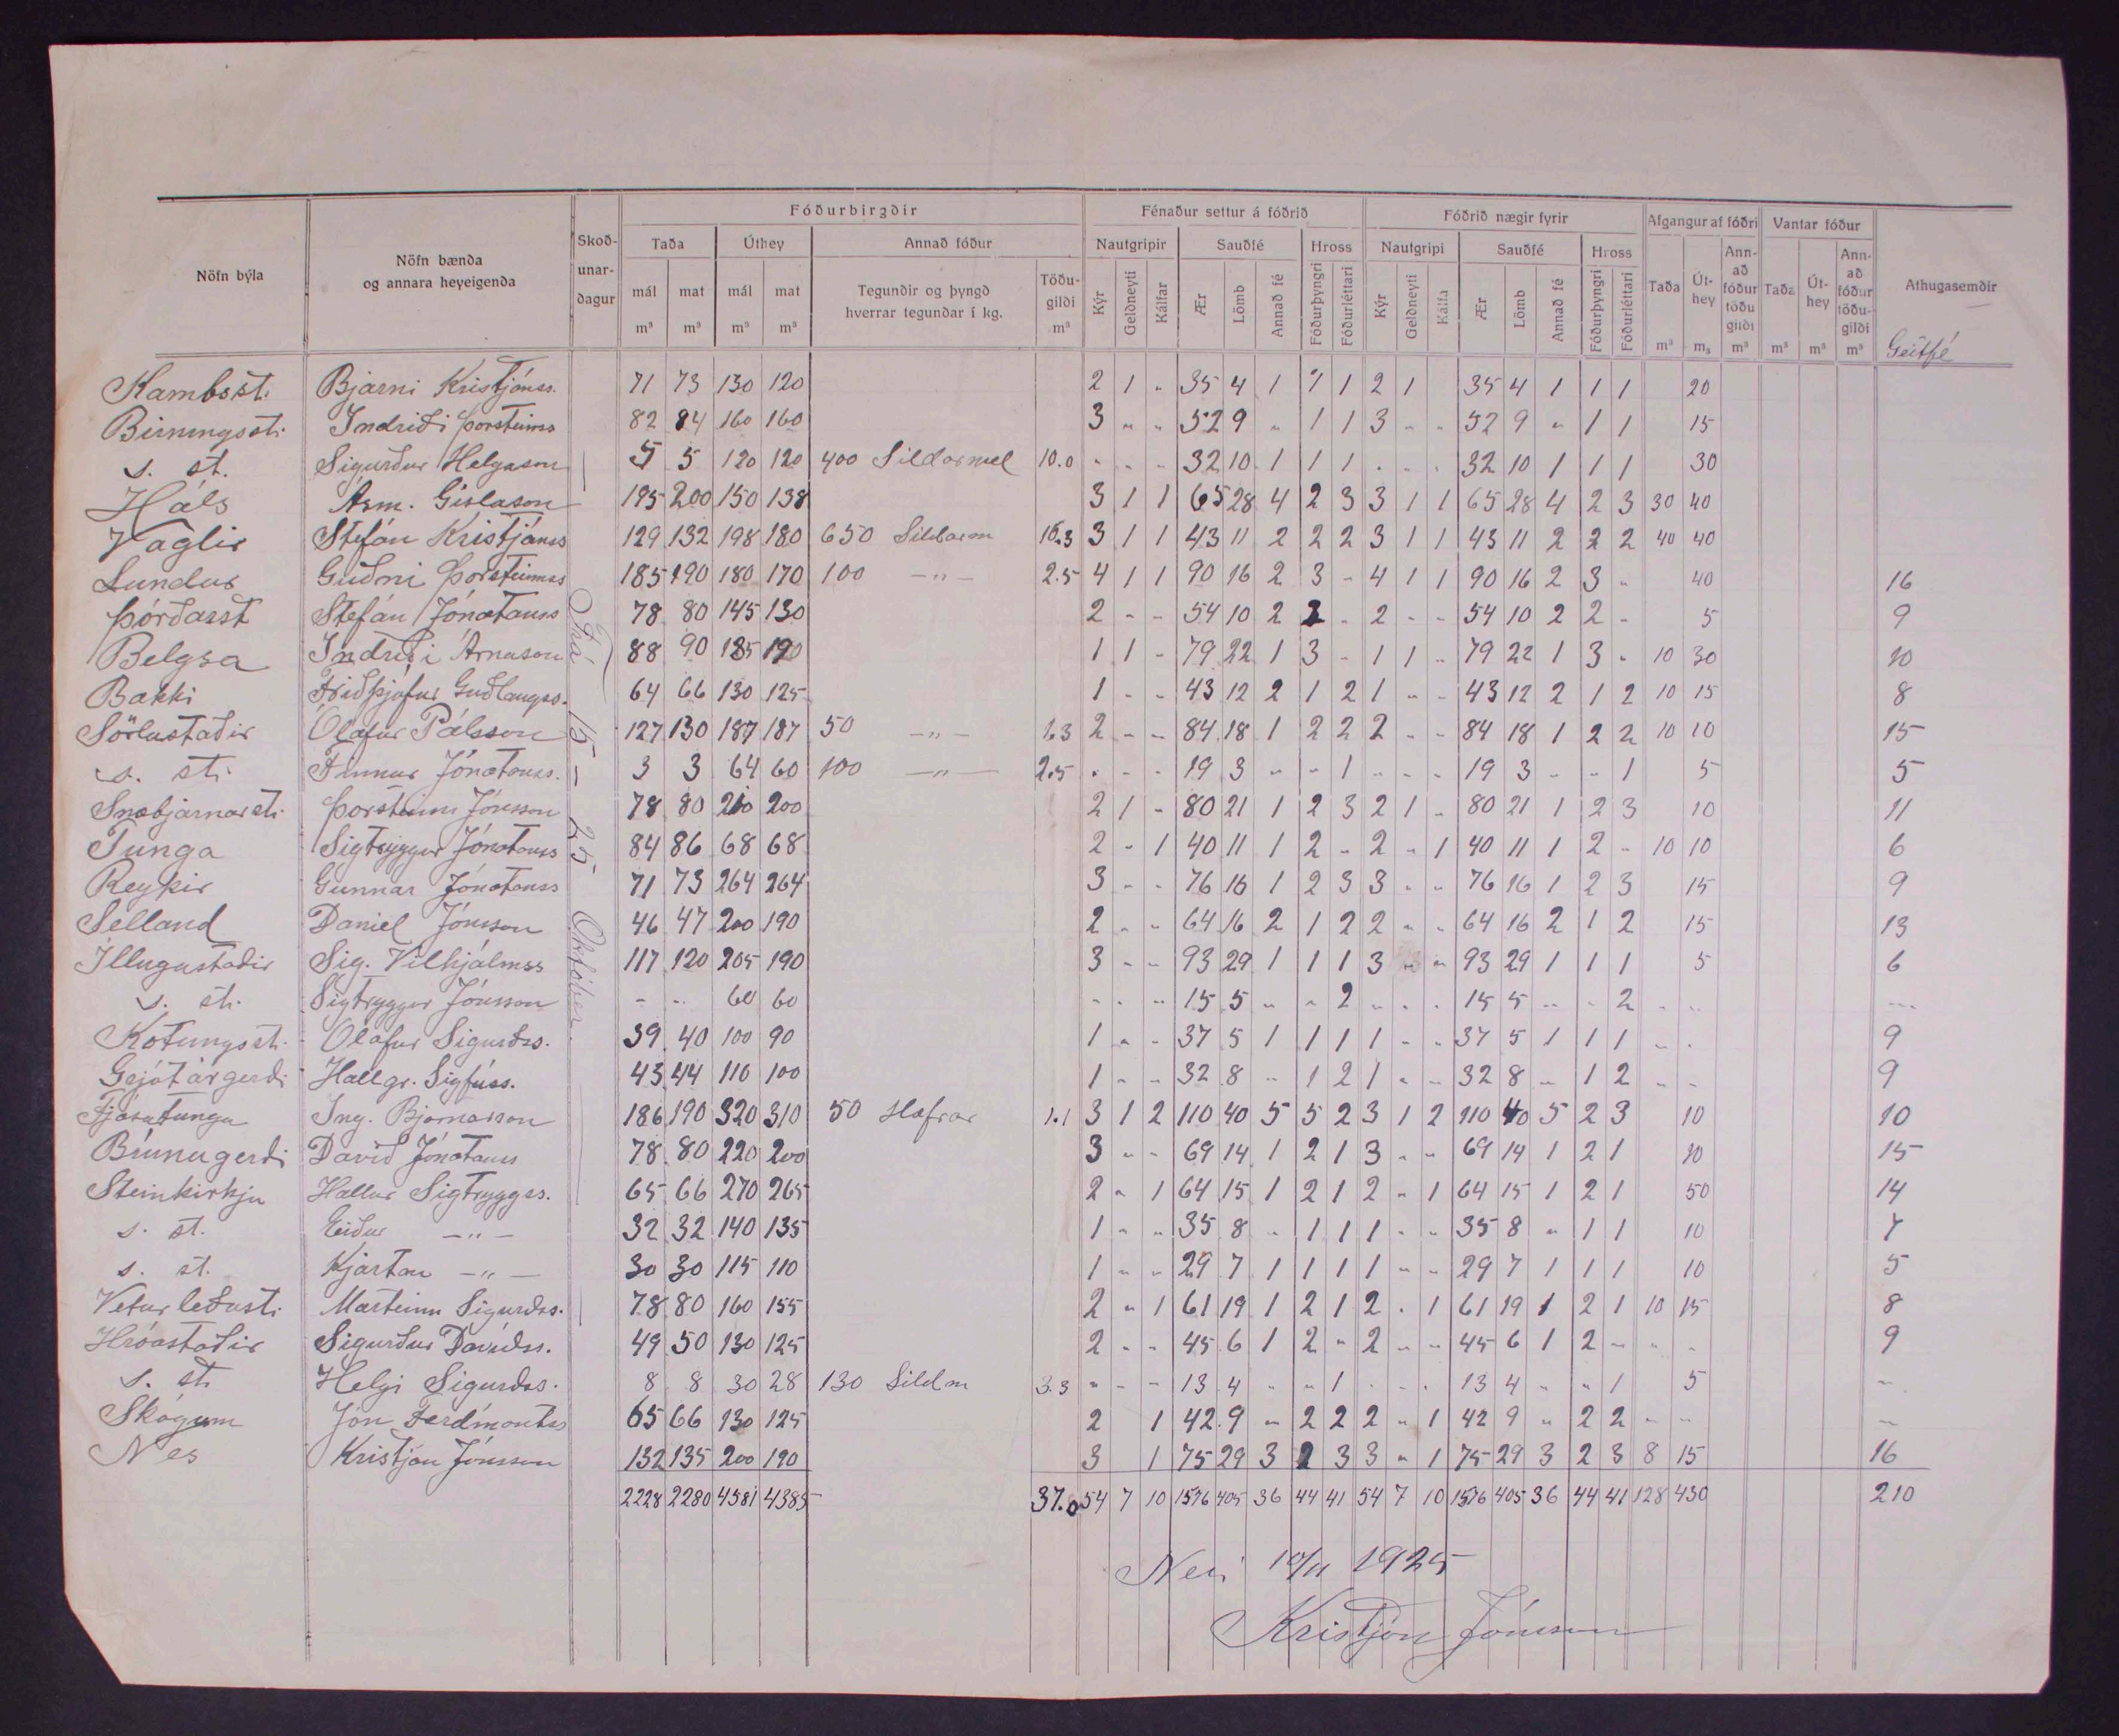 Fóðurbirgðir Fénaður settur á fóðrið Fóðrið nægir fyrir Afgangur af fóðri Vantar fóður
Nöfn býla Nöfn bænda og annara heyeigenda Skoð-unar-dagur Taða Úthey Annað fóður Nautgripir Sauðfé Hross Nautgripi Sauðfé Hross Taða Út-hey Ann-að fóður töðu gildi Taða Út-hey Ann-að fóður töðu-gildi Athugasemdir
mál m³ mat m³ mál m³ mat m³ Tegundir og þyngd hverrar tegundar í kg. Töðu-gildi m³ Kýr Geldneyti Kálfar Ær Lömb Annað fé Fóðurþyngri Fóðurléttari Kýr Geldneyti Kálfa Ær Lömb Annað fé Fóðurþyngri Fóðurléttari m³ m₃ m³ m³ m³ m³ Geitfé
Frá 15 - 25 Október
Kambsst. Bjarni Kristjánss. 71 73 130 120 2 1 " 35 4 1 1 1 2 1 35 4 1 1 1 20
Birningsst. Indriði Þorsteinss 82 84 160 160 3 " " 52 9 " 1 1 3 " " 52 9 " 1 1 15
s. st. Sigurður Helgason 5 5 120 120 400 Sildarmel 10.0 " " " 32 10 1 1 1 " " " 32 10 1 1 1 30
Háls Ásm. Gíslason 195 200 150 138 3 1 1 65 28 4 2 3 3 1 1 65 28 4 2 3 30 40
Vaglir Stefán Kristjánss 129 132 198 180 650 Sildarm 16.3 3 1 1 43 11 2 2 2 3 1 1 43 11 2 2 2 40 40
Lundur Guðni Þorsteinss 185 190 180 170 100 -"- 2.5 4 1 1 90 16 2 3 - 4 1 1 90 16 2 3 - 40 16
Þórðarst Stefán Jónatanss 78 80 145 130 2 - - 54 10 2 2 - 2 - - 54 10 2 2 - 5 9
Belgsa Indriði Árnason 88 90 185 190 1 1 - 79 22 1 3 - 1 1 - 79 22 1 3 - 10 30 10
Bakki Friðþjófur Guðlaugss. 64 66 130 125 1 - - 43 12 2 1 2 1 - - 43 12 2 1 2 10 15 8
Sörlustaðir Ólafur Pálsson 127 130 187 187 50 -"- 1.3 2 - - 84 18 1 2 2 2 - - 84 18 1 2 2 10 10 15
s. st. Finnur Jónatanss. 3 3 64 60 100 -"- 2.5 - - - 19 3 - - 1 - - - 19 3 - - 1 5 5
Snæbjarnarst. Þorsteinn Jónsson 78 80 210 200 2 1 - 80 21 1 2 3 2 1 - 80 21 1 2 3 10 11
Tunga Sigtryggur Jónatanss 84 86 68 68 2 - 1 40 11 1 2 - 2 - 1 40 11 1 2 - 10 10 6
Reykir Gunnar Jónatanss 71 73 264 264 3 - - 76 16 1 2 3 3 - - 76 16 1 2 3 15 9
Selland Daniel Jónsson 46 47 200 190 2 - - 64 16 2 1 2 2 - - 64 16 2 1 2 15 13
Illugustaðir Sig. Vilhjálmss 117 120 205 190 3 - - 93 29 1 1 1 3 - - 93 29 1 1 1 5 6
s. st. Sigtryggur Jónsson - - 60 60 - - - 15 5 - - 2 - - - 15 5 - - 2 - - -
Kotungsst. Ólafur Sigurðss. 39 40 100 90 1 - - 37 5 1 1 1 1 - - 37 5 1 1 1 - - 9
Grjótárgerði Hallgr. Sigfúss. 43 44 110 100 1 - - 32 8 - 1 2 1 - - 32 8 - 1 2 - - 9
Fjósatungu Ing. Bjarnarson 186 190 320 310 50 Hafrar 1.1 3 1 2 110 40 5 5 2 3 1 2 110 40 5 2 3 10 10
Brúnugerði Davíð Jónatanss 78 80 220 200 3 - - 69 14 1 2 1 3 - - 69 14 1 2 1 10 15
Steinkirkju Hallur Sigtryggss. 65 66 270 265 2 - 1 64 15 1 2 1 2 - 1 64 15 1 2 1 50 14
s. st. Eiður -"- 32 32 140 135 1 - - 35 8 - 1 1 1 - - 35 8 - 1 1 10 7
s. st. Kjartan -"- 30 30 115 110 1 - - 29 7 1 1 1 1 - - 29 7 1 1 1 10 5
Veturliðast. Marteinn Sigurðss. 78 80 160 155 2 - 1 61 19 1 2 1 2 - 1 61 19 1 2 1 10 15 8
Hróastaðir Sigurður Davíðss. 49 50 130 125 2 - - 45 6 1 2 - 2 - - 45 6 1 2 - - - 9
s. st. Helgi Sigurðss. 8 8 30 28 130 Sildm 3.3 - - - 13 4 - - 1 - - - 13 4 - - 1 5 -
Skógum Jón Ferdínantss 65 66 130 125 2 1 42 9 - 2 2 2 - 1 42 9 - 2 2 - - -
Nes Kristján Jónsson 132 135 200 190 3 1 75 29 3 2 3 3 - 1 75 29 3 2 3 8 15 16
2228 2280 4581 4385 37.0 54 7 10 1576 405 36 44 41 54 7 10 1576 405 36 44 41 128 430 210
Nesi 10/11 1925
Kristján Jónsson